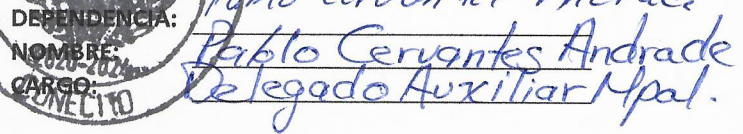 DEPENDENCIA:
NOMBRE: Pablo Cervantes Andrade
CARGO: Delegado Auxiliar Mpal.
2020-2024